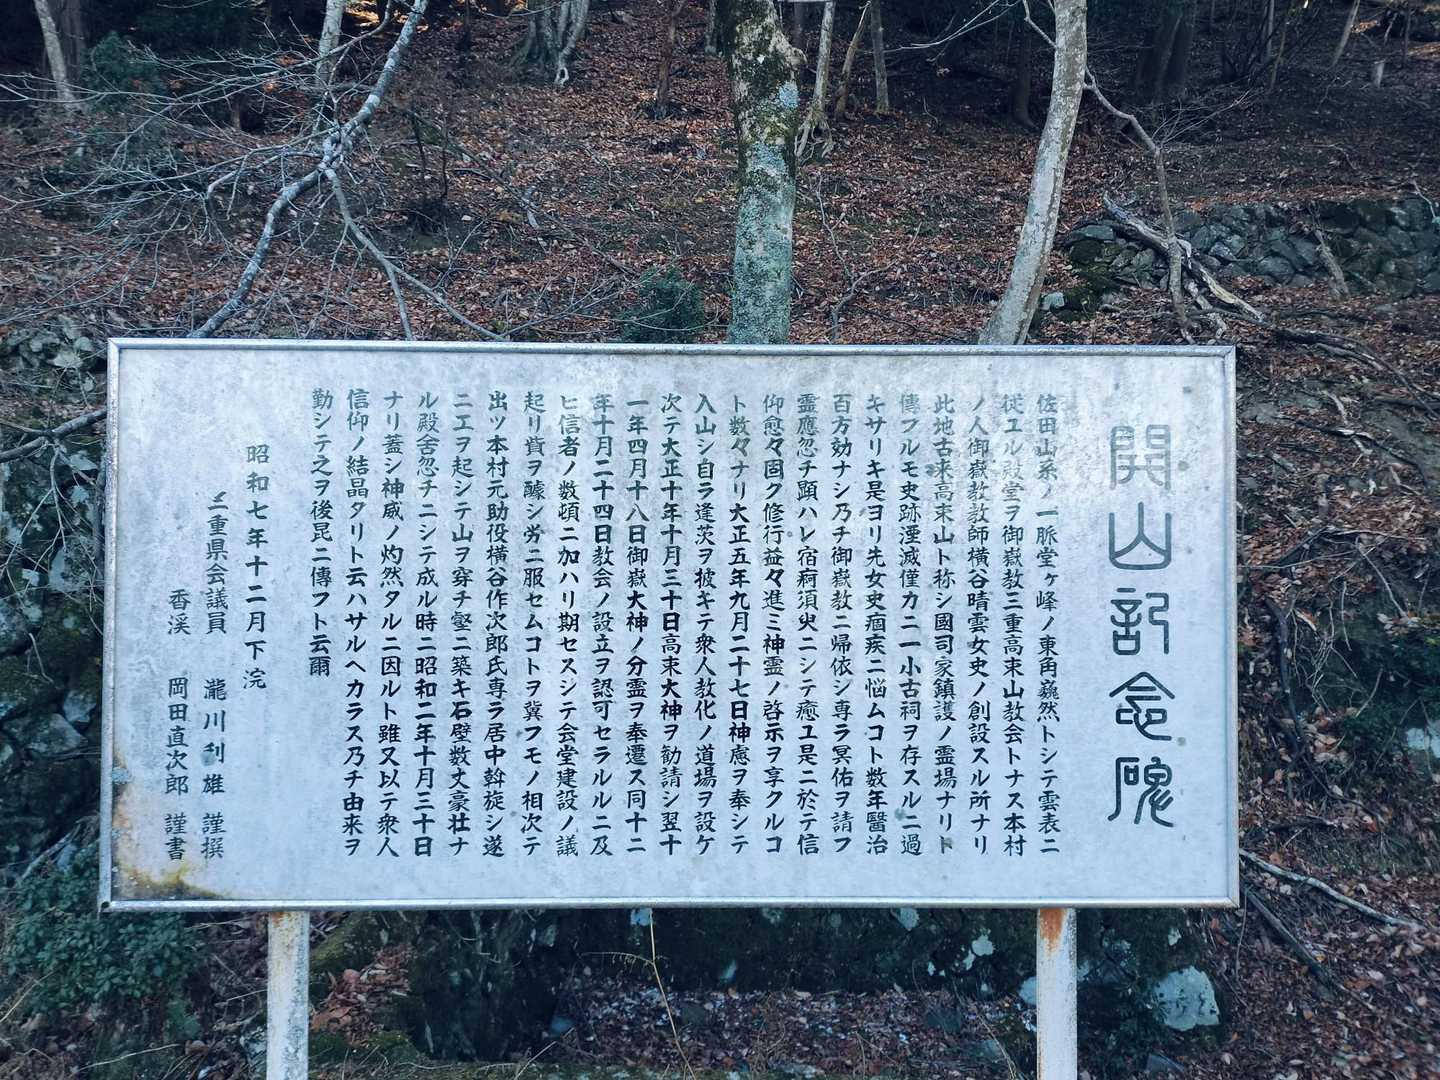 開山記念碑
佐田山系ノ一脈堂ヶ峰ノ東角巍然トシテ雲表ニ
従エル殿堂ヲ御嶽教三重高束山教会トナス本村
ノ人御嶽教教師横谷晴雲女史ノ創設スル所ナリ
此地古来高束山ト称シ國司家鎮護ノ霊場ナリト
傳フルモ史跡湮滅僅カニ一小古祠ヲ存スルニ過
キサリキ是ヨリ先女史痼疾ニ悩ムコト数年醫治
百方効ナシ乃チ御嶽教ニ帰依シ専ラ冥佑ヲ請フ
霊應忽チ顕ハレ宿痾須臾ニシテ癒ユ是ニ於テ信
仰愈々固ク修行益々進ミ神霊ノ啓示ヲ享クルコ
ト数々ナリ大正五年九月二十七日神慮ヲ奉シテ
入山シ自ラ蓬茨ヲ披キテ衆人教化ノ道場ヲ設ケ
次テ大正十年十月三十日高束大神ヲ勧請シ翌十
一年四月十八日御嶽大神ノ分霊ヲ奉遷ス同十二
年十月二十四日教会ノ設立ヲ認可セラルルニ及
ヒ信者ノ数頓ニ加ハリ期セスシテ会堂建設ノ議
起リ貲ヲ醵シ労ニ服セムコトヲ冀フモノ相次テ
出ツ本村元助役横谷作次郎氏専ラ居中斡旋シ遂
ニエヲ起シテ山ヲ穿チ壑ニ築キ石壁数丈豪壮ナ
ル殿舎忽チニシテ成ル時ニ昭和二年十月三十日
ナリ蓋シ神威ノ灼然タルニ因ルト雖又以テ衆人
信仰ノ結晶タリト云ハサルヘカラス乃チ由来ヲ
勤シテ之ヲ後昆ニ傳フト云爾
昭和七年十二月下浣
三重県会議員 瀧川利雄 謹撰
香渓 岡田直次郎 謹書